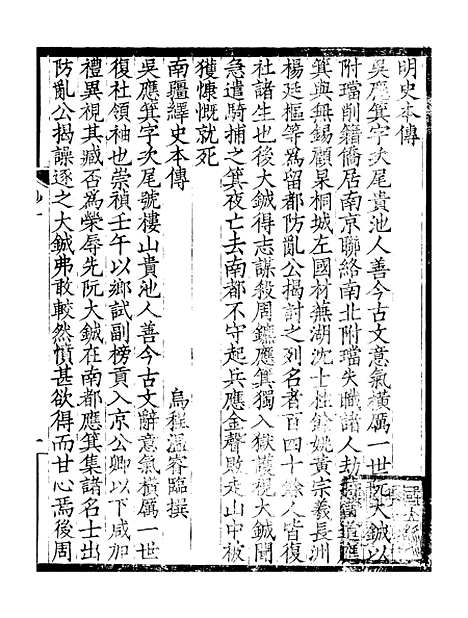 明史本傳
吳應箕字次尾貴池人善今古文意氣橫厲一世阮大鋮以
附璫削籍僑居南京聯絡南北附璫失職諸人劫
箕與無錫顧杲桐城左國材蕪湖沈士柱餘姚黃宗羲長洲
楊廷樞等爲留都防亂公揭討之列名者百四十餘人皆復
社諸生也後大鋮得志謀殺周鑣應箕獨入獄護視大鋮聞
急遣騎捕之箕夜亡去南都不守起兵應金聲敗走山中被
獲慷慨就死
南疆繹史本傳
烏程溫睿臨撰
吳應箕字次尾號樓山貴池人善今古文辭意氣橫厲一世
復社領袖也崇禎壬午以鄉試副榜貢入京公卿以下咸加
禮異視其臧否爲榮辱先阮大鋮在南都應箕集諸名士出
防亂公揭譟逐之大鋮弗敢較然憤甚欲得而甘心焉後周